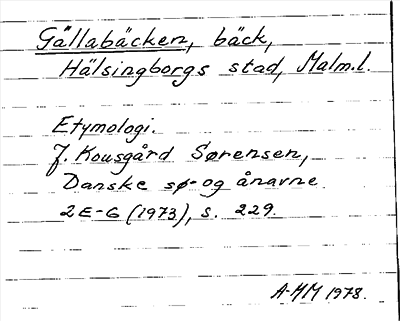 Gällabäcken, bäck,
Hälsingborgs stad, Malm.l.
Etymologi.
J. Kousgård Sørensen,
Danske sø- og ånavne.
2 E-G (1973), s. 229.
A-MM 1978.